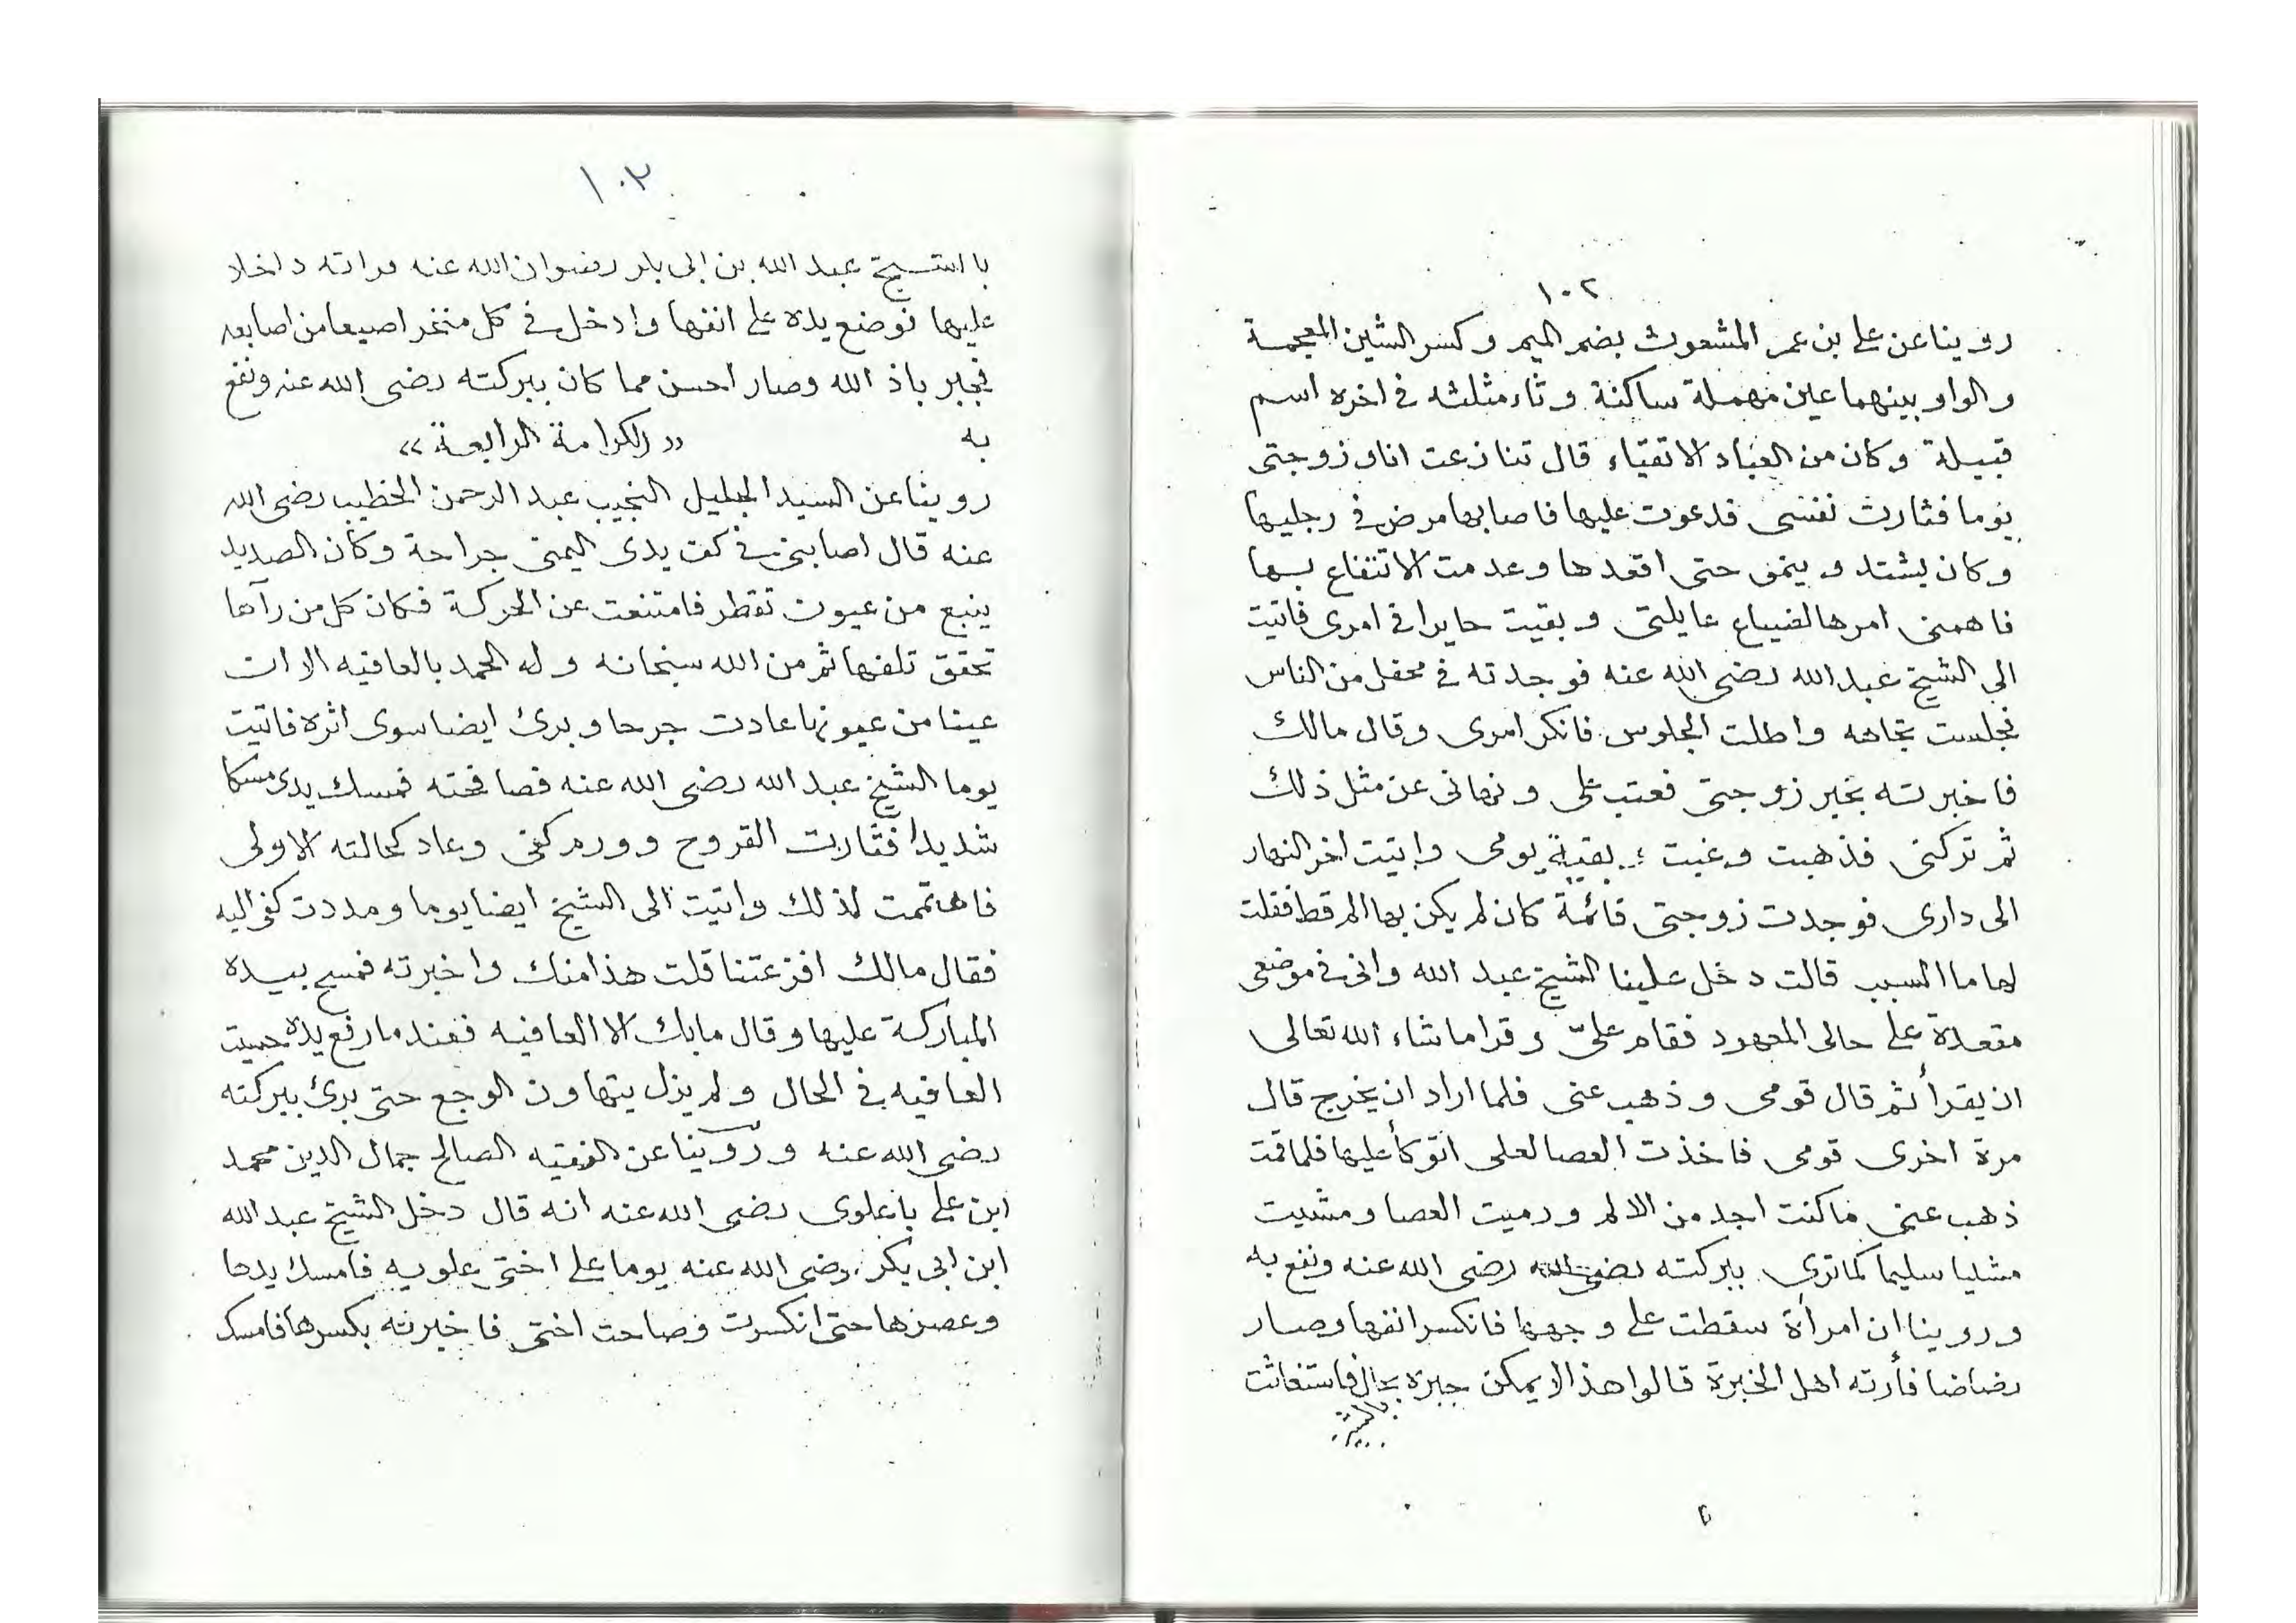 ١٠٢
روينا عن علي بن عمر المشعوث بضم الميم وكسر الشين المعجمة
والواو بينهما عين مهملة ساكنة وثاء مثلثه في اخره اسم
قبيلة وكان من العباد الاتقياء قال تنازعت انا وزوجتى
يوما فثارت نفسى فدعوت عليها فاصابها مرض في رجليها
وكان يشتد وينمى حتى اقعدها وعدمت الانتفاع بها
فاهمنى امرها لضياع عايلتى وبقيت حايرا في امرى فاتيت
الى الشيخ عبد الله رضى الله عنه فوجدته في محفل من الناس
فجلست تجاهه واطلت الجلوس فانكر امرى وقال مالك
فاخبرته بخبر زوجتى فعتب على ونهانى عن مثل ذلك
ثم تركنى فذهبت وغبت بقية يومى واتيت اخر النهار
الى دارى فوجدت زوجتى قائمة كان لم يكن بها الم قط فقلت
لها ما السبب قالت دخل علينا الشيخ عبد الله وانى في موضعى
مقعدة على حالى المعهود فقام علىّ وقرا ما شاء الله تعالى
ان يقرأ ثم قال قومى وذهب عنى فلما اراد ان يخرج قال
مرة اخرى قومى فاخذت العصا لعلى اتوكأ عليها فلما قمت
ذهب عنى ما كنت اجد من الالم ورميت العصا ومشيت
مشيا سليما كما ترى ببركته رضى الله رضى الله عنه ونفع به
وروينا ان امرأة سقطت على وجهها فانكسر انفها وصار
رضاضا فأرته اهل الخبرة قالوا هذا لا يمكن جبره بحال فاستغاثت
بالشيخ
١٠٣
بالشيخ عبد الله بن ابى بكر رضوان الله عنه فراته داخلا
عليها فوضع يده على انفها وادخل في كل منخر اصبعا من اصابعه
فجبر باذ الله وصار احسن مما كان ببركته رضى الله عنه ونفع
به «الكرامة الرابعة»
روينا عن السيد الجليل النجيب عبد الرحمن الخطيب رضى الله
عنه قال اصابنى في كف يدى اليمنى جراحة وكان الصديد
ينبع من عيون تقطر فامتنعت عن الحركة فكان كل من رآها
تحقق تلفها ثم من الله سبحانه وله الحمد بالعافيه الا ان
عينا من عيونها عادت جرحا وبرئ ايضا سوى اثره فاتيت
يوما الشيخ عبد الله رضى الله عنه فصافحته فمسك يدى مسكا
شديدا فثارت القروح وورم كفى وعاد كحالته الاولى
فاهتممت لذلك واتيت الى الشيخ ايضا يوما ومددت كفى اليه
فقال مالك افزعتنا قلت هذا منك واخبرته فمسح بيده
المباركة عليها وقال ما بك الا العافيه فعند ما رفع يده حسيت
العافيه في الحال ولم يزل يتهاون الوجع حتى برئ ببركته
رضى الله عنه وروينا عن الفقيه الصالح جمال الدين محمد
ابن على باعلوى رضى الله عنه انه قال دخل الشيخ عبد الله
ابن ابى بكر رضى الله عنه يوما على اختى علويه فامسك يدها
وعصرها حتى انكسرت وصاحت اختى فاخبرته بكسرها فامسك